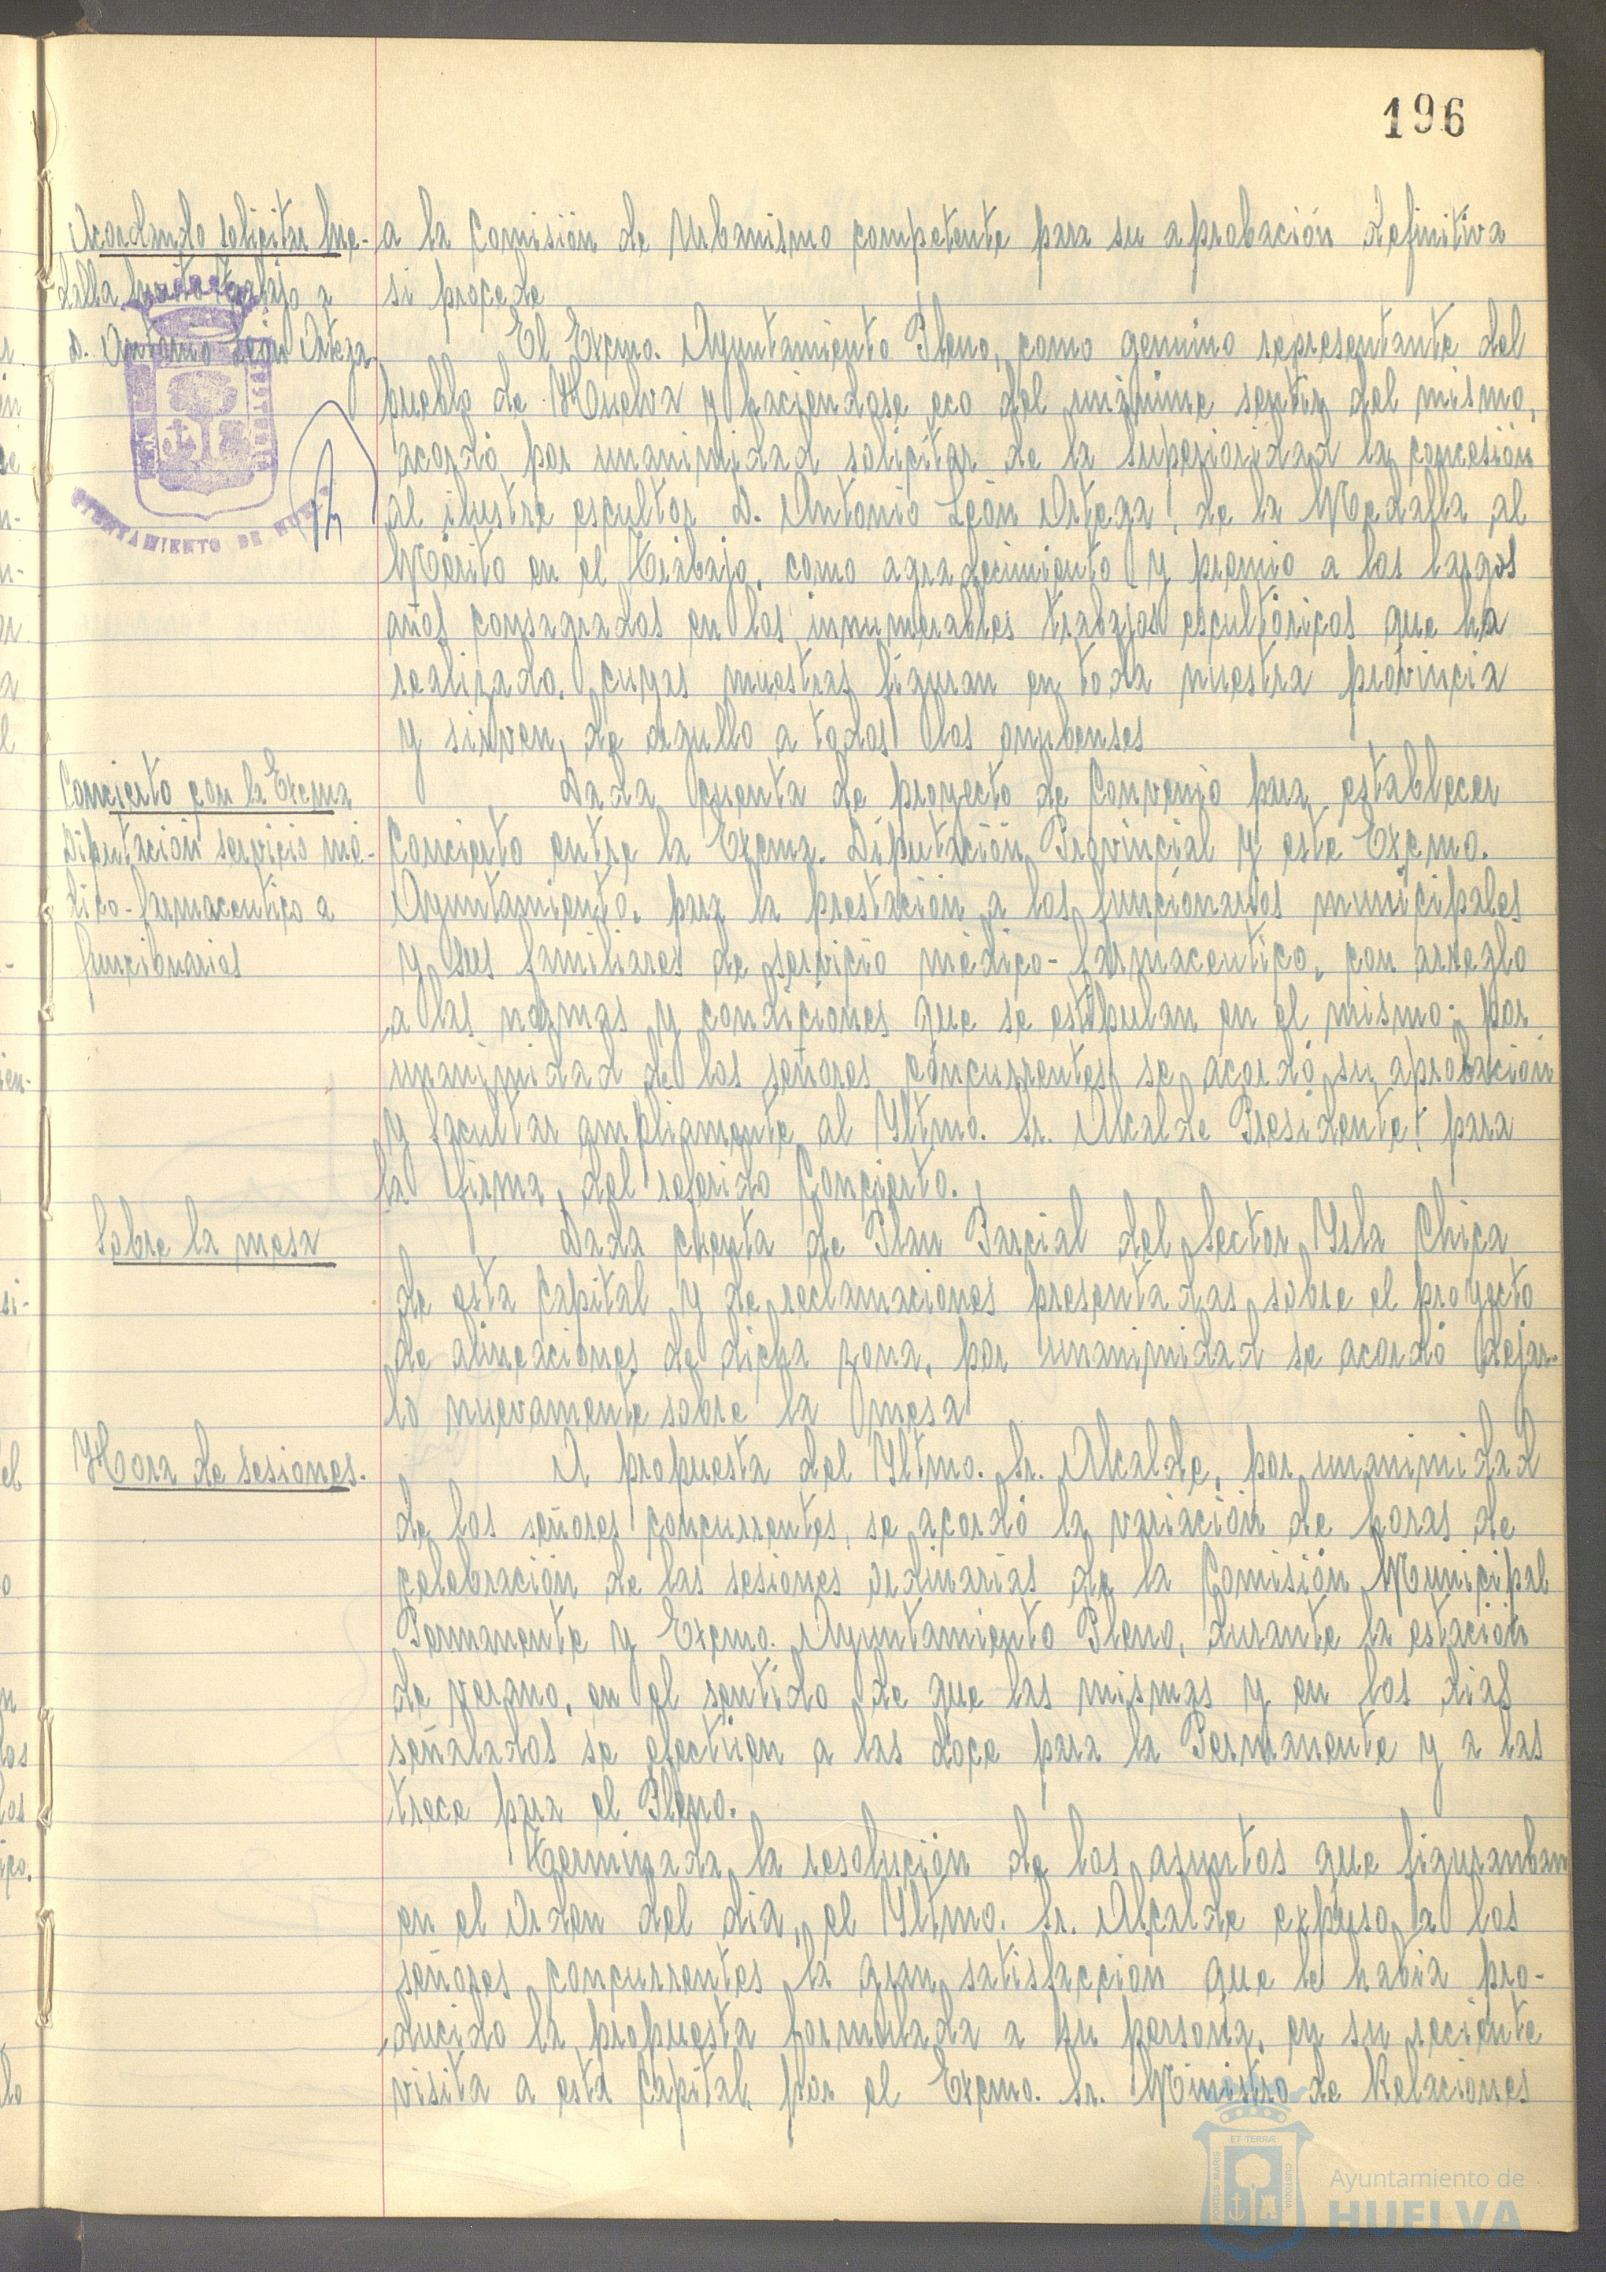 196
Acordando solicitar Me-
dalla Mérito Trabajo a
D. Antonio León Ortega
AYUNTAMIENTO DE HUELVA
a la Comisión de Urbanismo competente para su aprobación definitiva
si procede
El Excmo. Ayuntamiento Pleno, como genuino representante del
pueblo de Huelva y haciendose eco del unánime sentir del mismo,
acordó por unanimidad solicitar de la Superioridad la concesión
al ilustre escultor D. Antonio León Ortega, de la Medalla al
Mérito en el Trabajo, como agradecimiento y premio a los largos
años consagrados en los innumerables trabajos escultóricos que ha
realizado, cuyas muestras figuran en toda nuestra provincia
y sirven de orgullo a todos los onubenses
Concierto con la Excma
Diputación servicio mé-
dico-farmaceutico a
funcionarios
Dada cuenta de proyecto de Convenio para establecer
Concierto entre la Excma. Diputación Provincial y este Excmo.
Ayuntamiento, para la prestación a los funcionarios municipales
y sus familiares de servicio médico-farmaceutico, con arreglo
a las normas y condiciones que se estipulan en el mismo; por
unanimidad de los señores concurrentes se acordó su aprobación
y facultar ampliamente al Yltmo. Sr. Alcalde Presidente para
la firma del referido Concierto.
Sobre la mesa
Dada cuenta de Plan Parcial del Sector Ysla Chica
de esta capital y de reclamaciones presentadas sobre el proyecto
de alineaciones de dicha zona, por unanimidad se acordó dejar-
lo nuevamente sobre la mesa
Hora de sesiones.
A propuesta del Yltmo. Sr. Alcalde, por unanimidad
de los señores concurrentes, se acordó la variación de horas de
celebración de las sesiones ordinarias de la Comisión Municipal
Permanente y Excmo. Ayuntamiento Pleno, durante la estación
de verano, en el sentido de que las mismas y en los dias
señalados se efectúen a las doce para la Permanente y a las
trece para el Pleno.
Terminada la resolución de los asuntos que figuranban
en el Orden del dia, el Yltmo. Sr. Alcalde expuso a los
señores concurrentes la gran satisfacción que le habia pro-
ducido la propuesta formulada a su persona, en su reciente
visita a esta Capital, por el Excmo. Sr. Ministro de Relaciones
ET TERRÆ
PORTUS MARIS
CUSTODIA
Ayuntamiento de
HUELVA